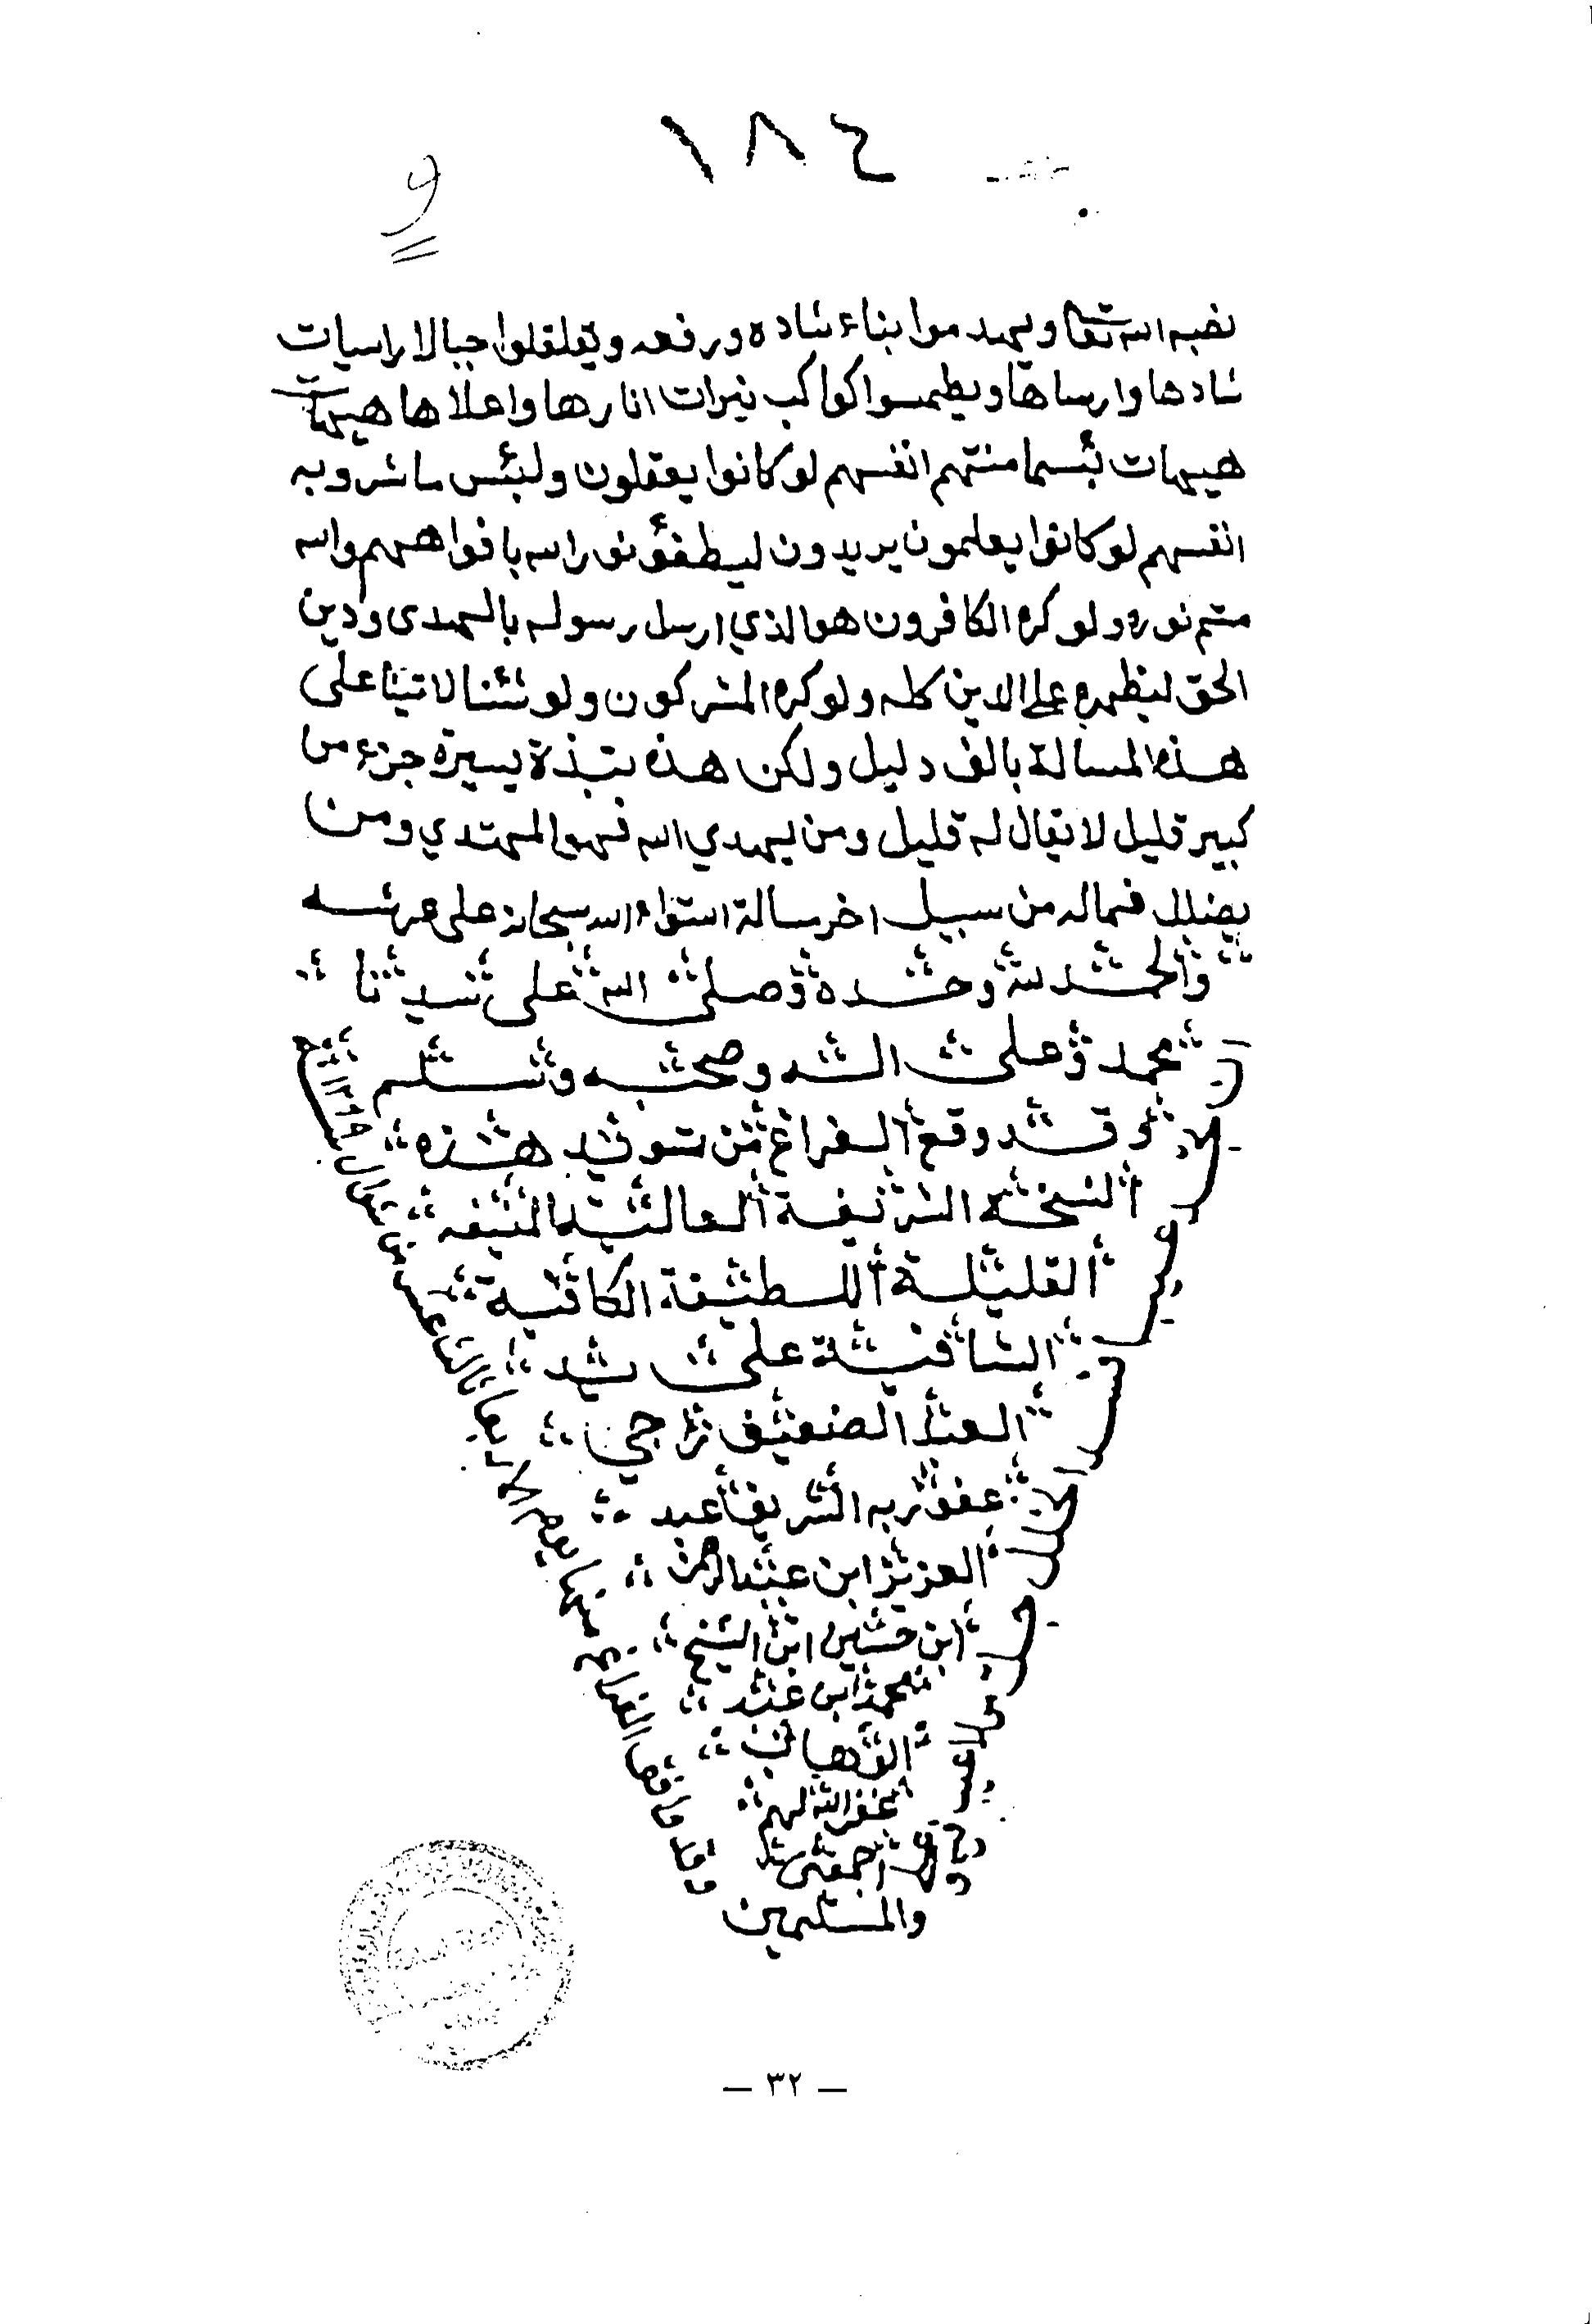 ١٨٤
و
نصبه الله تعا ويهدموا بناء شاده ورفعه ويقلقلوا جبالا راسيات
شادها وارساها ويطمسوا كواكب نيرات انارها واعلاها هيهات
هيهات بئسما منتهم انفسهم لو كانوا يعقلون ولبئس ما شروبه
انفسهم لو كانوا يعلمون يريدون ليطفؤ نور الله بافواههم والله
متم نوره ولو كره الكافرون هو الذي ارسل رسوله بالهدى ودين
الحق ليظهره على الدين كله ولو كره المشركون ولو شئنا لاتينا على
هذه المسالة بالف دليل ولكن هذه نبذة يسيرة جزء من
كبير قليل لا يقال له قليل ومن يهدي الله فهو المهتدي ومن
يضلل فماله من سبيل اخر رسالة استواء الله سبحانه على عرشه
والحمد لله وحده وصلى الله على سيدنا
محمد وعلى اله وصحبه وسلم
وقد وقع الفراغ من تسويد هذه
النسخة الشريفة العالية المنيفه
القليلة اللطيفة الكافية
الشافية على يد
العبد الضعيف راجي
عفو ربه الشريف عبد
العزيز ابن عبد الرحمن
ابن حسين ابن الشيخ
محمد ابن عبد
الوهاب
غفر الله لهم
اجمعين
والمسلمين
- ٣٢ -